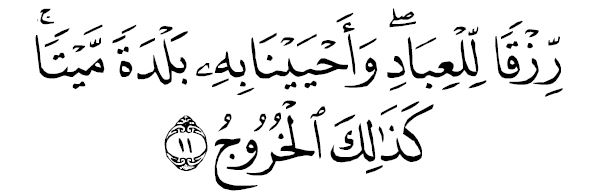 رِّزْقًا لِّلْعِبَادِۖ وَأَحْيَيْنَا بِهِۦ بَلْدَةً مَّيْتًاۚ
كَذَٰلِكَ ٱلْخُرُوجُ ١١